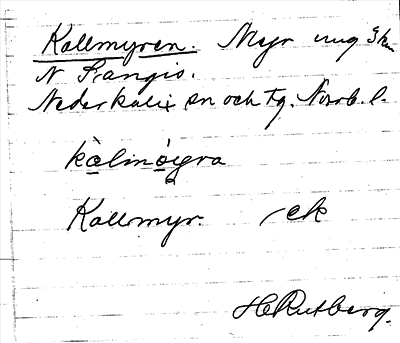 Kallmyren. Myr ung 3 km
N Frangis.
Nederkalix sn och tg. Norrb. l.
kàlmóyra
Kallmyr. -ck
HRutberg.